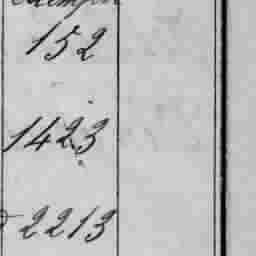 152
1423
2213